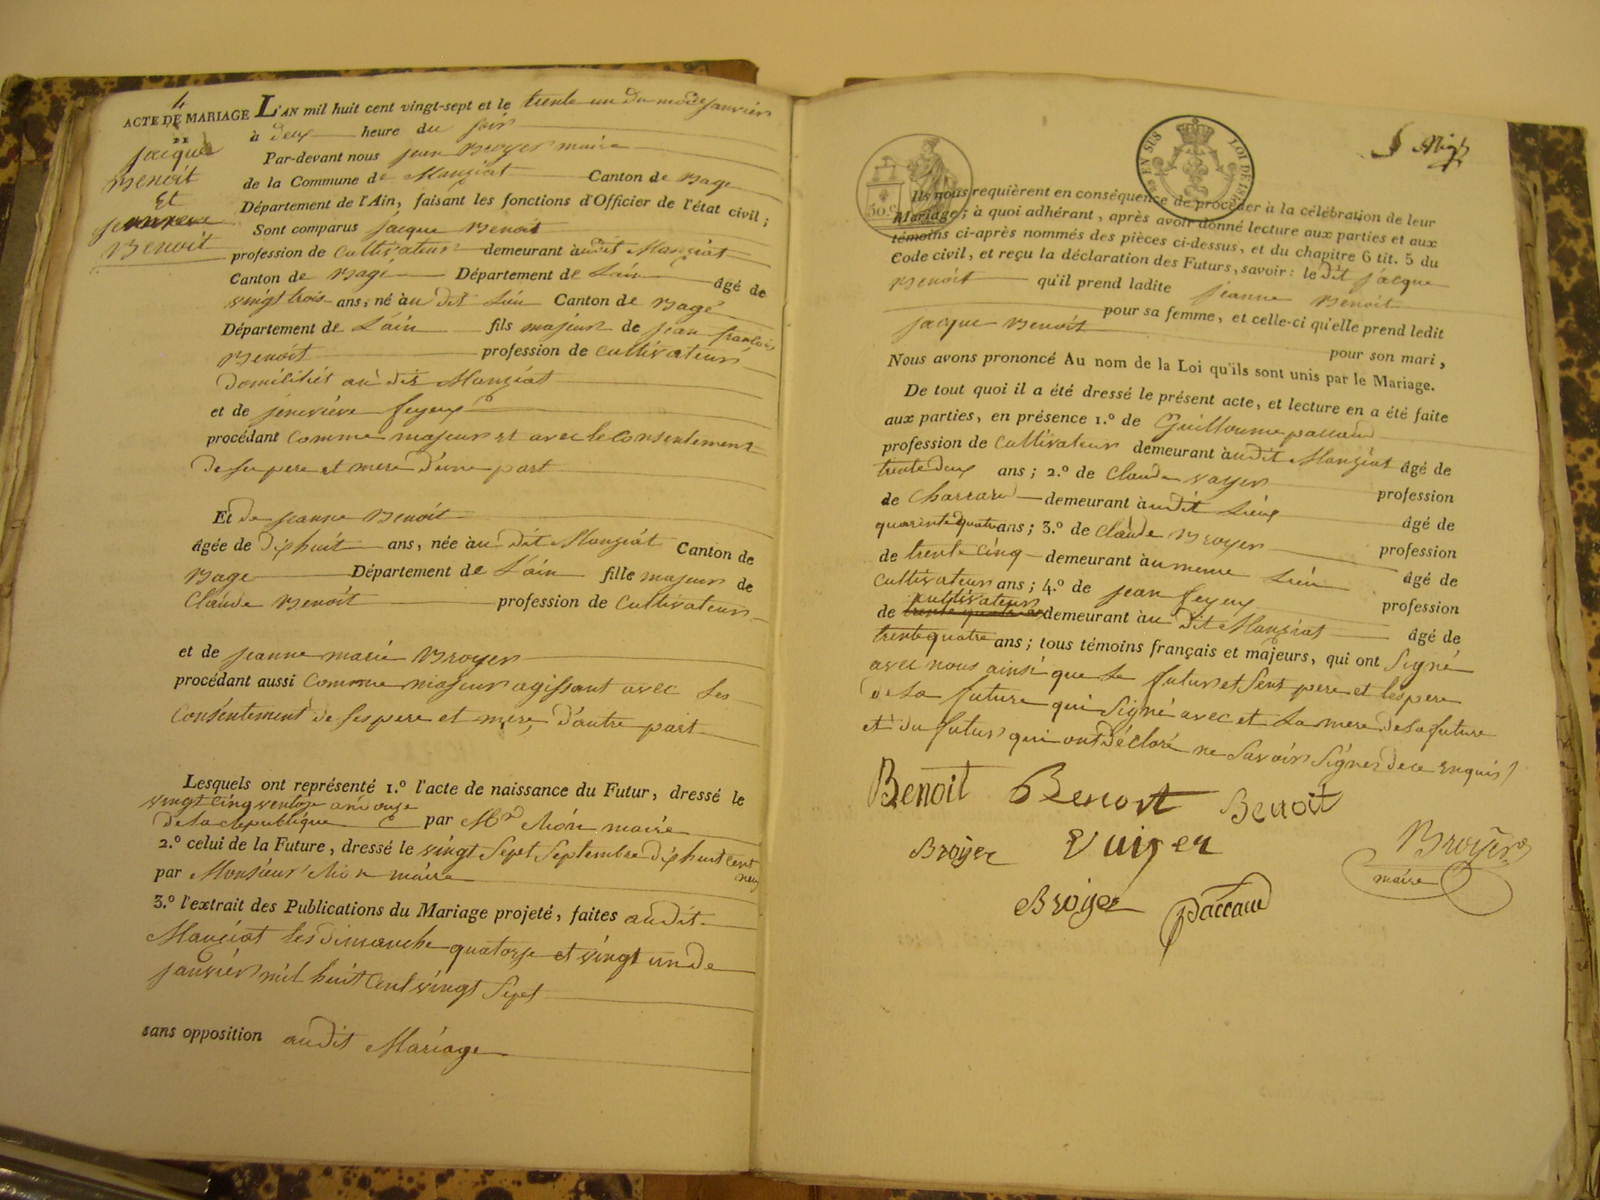 4
ACTE DE MARIAGE
DE
jacque
Benoit
Et
jeanne
Benoit
L'AN mil huit cent vingt-sept et le trente un du mois de janvier
à deux heure du soir
Par-devant nous jean Broyer maire
de la Commune de Manziat Canton de Bage
Département de l'Ain, faisant les fonctions d'Officier de l'état civil;
Sont comparus jacque Benoit
profession de Cultivateur demeurant audit Manziat
Canton de Bagé Département de Lain âgé de
vingt trois ans, né au dit Lieu Canton de Bagé
Département de L'ain fils majeur de jean françois
Benoit profession de Cultivateur
domiliés au dit Manziat
et de jeneviève feyeux
procédant comme majeur et avec le Consentement
de ses pere et mere d'une part
Et de jeanne Benoit
âgée de diphuit ans, née au dit Manziat Canton de
Bage Département de L'ain fille majeur de
Claude Benoit profession de Cultivateur
et de jeanne marie Broyer
procédant aussi Comme majeur agissant avec Les
Consentement de ses pere et mere, d'autre part
Lesquels ont représenté 1.º l'acte de naissance du Futur, dressé le
vingt cinq ventose an onze
de la Republique par Mr maire
2.º celui de la Future, dressé le vingt Sept Septembre diphuit cent
neuf
par Monsieur maire
3.º l'extrait des Publications du Mariage projeté, faites audit
Manziat les dimanche quatorze et vingt un de
janvier mil huit Cent vingt Sept
sans opposition audit Mariage
50.c
EN SUS
LOI DE 18
Ils nous requièrent en conséquence de procéder à la célébration de leur
Mariage; à quoi adhérant, après avoir donné lecture aux parties et aux
témoins ci-après nommés des pièces ci-dessus, et du chapitre 6 tit. 5 du
Code civil, et reçu la déclaration des Futurs, savoir: le dit jacque
Benoit qu'il prend ladite jeanne Benoit
pour sa femme, et celle-ci qu'elle prend ledit
jacque Benoit pour son mari,
Nous avons prononcé Au nom de la Loi qu'ils sont unis par le Mariage.
De tout quoi il a été dressé le présent acte, et lecture en a été faite
aux parties, en présence 1.º de Guilloume paccaud
profession de Cultivateur demeurant audit Manziat âgé de
trente deux ans; 2.º de Claude voyer profession
de Charcard demeurant audit Lieux âgé de
quarente quatre ans; 3.º de Claude Broyer profession
de trente Cinq demeurant au meme Lieu âgé de
Cultivateur ans; 4.º de jean feyeux profession
de cultivateur demeurant au dit Manziat âgé de
trente quatre ans; tous témoins français et majeurs, qui ont Signé
avec nous ainsi que Le futur et Sont pere et les pere
de La future qui Signé avec et La mere de la future
et du futur qui ont déclaré ne Savoir Signer de ce enquis
Benoit Benoit Benoit
Broyer Vuiyer Broyer
maire
Broyer paccaud